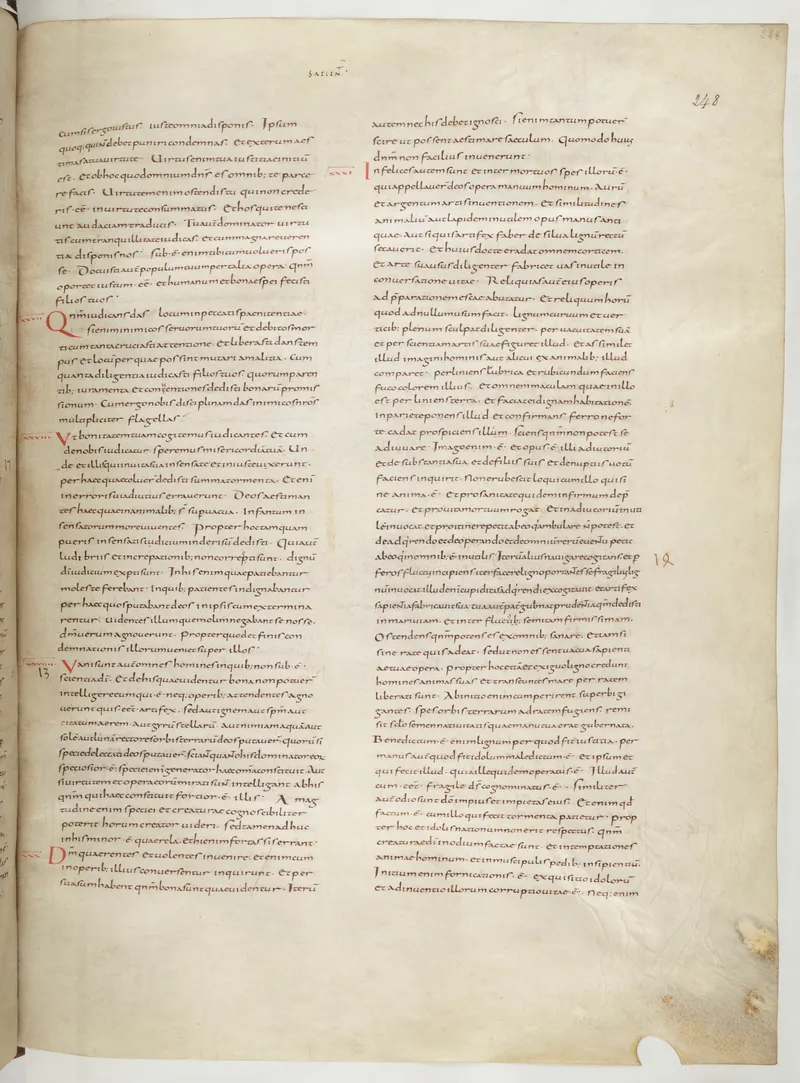 SAPIEN̄
248
cum sis ergo iustus. iuste omnia disponis. Ipsum
quoq; qui n̄ debet puniri condemnas. Et exterum aes
timas a tua uirtute. Uirtus enim tua iustitiae initiū
est. et ob hoc quod omnium dn̄s es omnib; te parce
re facis. Uirtutem enim ostendis tu qui non crede
ris eē in uirtute consummatus. Et hos qui te nesci
unt audaciam traducis. Tu aut̄ dominator uirtu
tis cum tranquillitate iudicas. et cum magna reueren
tia disponis nos. sub ē enim tibi cum uolueris pos
se. Docuisti aut̄ populum tuum per talia opera. qm̄
oportet iustum eē et humanum et bonae spei fecisti
filios tuos.
Qm̄ iudicans das locum in peccatis paenitentiae
si enim inimicos seruorum tuorū et debitos mor
ti cum tanta cruciasti attentione. et liberasti dans tem
pus et locū per quae possint mutari a malitia. Cum
quanta diligentia iudicasti filios tuos. quorum paren
tib; iuramenta et conuentiones dedisti bonarū promis
sionum. Cum ergo nobis disciplinam das inimicos nros
multipliciter flagellas.
Ut bonitatem tuam cogitemus iudicantes. Et cum
de nobis iudicatur speremus misericordiā tuā. Un
de et illis qui in uita sua insensate et iniuste uixerunt.
per haec quae coluer̄ dedisti summa tormenta. Eteni
in erroris uia diutius errauerunt. Deos aestiman
tes haec quae in animalib; s̄ superuacua. Infantium in
sensatorum more uiuentes. Propter hoc tamquam
pueris insensatis iudicium in derisū dedisti. Qui aut̄
ludibriis et increpationib; non correpti sunt. dignū
dī iudicium experti sunt. In his enim quae patiebantur
moleste ferebant. In quib; patientes indignabantur
per haec quos putabant deos in ipsis cum extermina
rentur. uidentes illum quem olim negabant se nosse.
dm̄ uerum agnouerunt. Propter quod et finis con
demnationis illorum uenit super illos.
13
Uani sunt aut̄ omnes homines in quib; non sub ē
scientia dī. Et de his quae uidentur bona non potuer̄
intellegere eum qui ē neq; operib; attendentes agno
uerunt quis eet artifex. sed aut ignem aut spm̄ aut
citatum aerem. Aut gyrū stellarū. Aut nimiam aquā aut
sole aut lunā rectores orbis terrarū deos putauer̄. quorū si
specie delectati deos putauer̄
speciosior ē. speciei enī generator haec omīa constituit. Aut
si uirtutem et opera eorū mirati sunt. intellegant ab his
qm̄ qui haec constituit fortior ē illis. A mag
nitudine enim speciei et creaturae cognoscibiliter
poterit horum creator uideri. sed tamen adhuc
in his minor ē quaerela. et hi enim fortassis errant
Dm̄ quaerentes et uolentes inuenire. etenim cum
in operib; illius conuersentur inquirunt. Et per
suasum habent qm̄ bona sunt quae uidentur. Iterū
autem nec his debet ignosci. si enim tantum potuer̄
scire ut possent aestimare saeculum. Quomodo huius
dn̄m non facilius inuenerunt.
Infelices autem sunt et inter mortuos spes illorū ē
qui appellauer̄ deos opera manuum hominum. Aurū
et argentum artis inuentionem. et similitudines
animaliū aut lapidem inutilem opus manus anti
quae. Aut si quis artifex faber de silua lignū rectū
secauerit. Et huius docte eradat omnem corticem.
Et arte sua usus diligenter fabricet uas inutile in
conuersatione uitae. Reliquias aut̄ eius operis
ad p̄parationem escae abutatur. Et reliquum horū
quod ad nullum usum facit. Lignum curuum et uer
ticib; plenum sculpat diligenter. per uacuitatem suā
et per scientiam artis suae figuret illud. et assimilet
illud imagini hominis aut alicui ex animalib; illud
comparet. perliniens rubrica et rubicundum faciens
fuco colorem illius. Et omnem maculam quae in illo
est perliniens terra. et faciat ei dignam habitationē
in pariete ponens illud et confirmans ferro ne for
te cadat prospiciens illum. sciens qm̄ non potest se
adiuuare. Imago enim ē et opus ē illi adiutoriū
et de substantia sua. et de filiis suis et de nuptiis uotū
faciens inquirit. Non erubescit loqui cum illo qui si
ne anima ē. Et pro sanitate quidem infirmum dep̄
catur. Et pro uita mortuum rogat. Et in adiutoriū inuti
lē inuocat
Ostendens qm̄ potens es ex omnib; sanare. Etiam si
sine rate quis adeat. sed ut non essent uacua sapientia
ae tuae opera. propter hoc etiā et exiguo ligno credunt
homines animas suas et transeuntes mare per ratem
liberati sunt. Ab initio enim cum perirent superbi gi
gantes. spes orbis terrarum ad ratem fugiens. remi
sit s̄clo semen natiuitatis quae manu tua erat gubernata.
Benedictum ē enim lignum per quod fit iustitia. per
manus aut̄ quod fit idolum maledictum ē et ipsum et
qui fecit illud. quia ille quidem operatus ē. Illud aut̄
cum eēt fragile ds̄ cognominatus ē. similiter
aut̄ odio sunt dō impius et impietas eius. Etenim qd̄
factum ē cum illo qui fecit tormenta patietur. prop
ter hoc et idolis nationum non erit respectus. qm̄
creaturae dī in odium factae sunt. et in temptationes
animae hominum. et in muscipulis pedib; insipientiū.
Initium enim fornicationis ē exquisitio idolorū
et adinuentio illorum corruptio uitae ē. Neq; enim